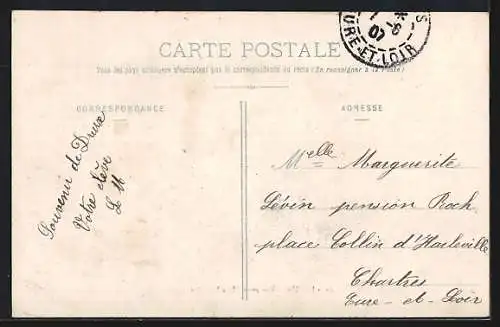 CARTE POSTALE
Tous les pays étrangers n'acceptent pas la correspondance au recto (Se renseigner à la Poste)
CORRESPONDANCE
ADRESSE
07
EURE-ET-LOIR
Souvenir de Dreux
Votre élève
Melle Marguerite
Lévin pension Roch
place Collin d'Harleville
Chartres
Eure-et-Loir